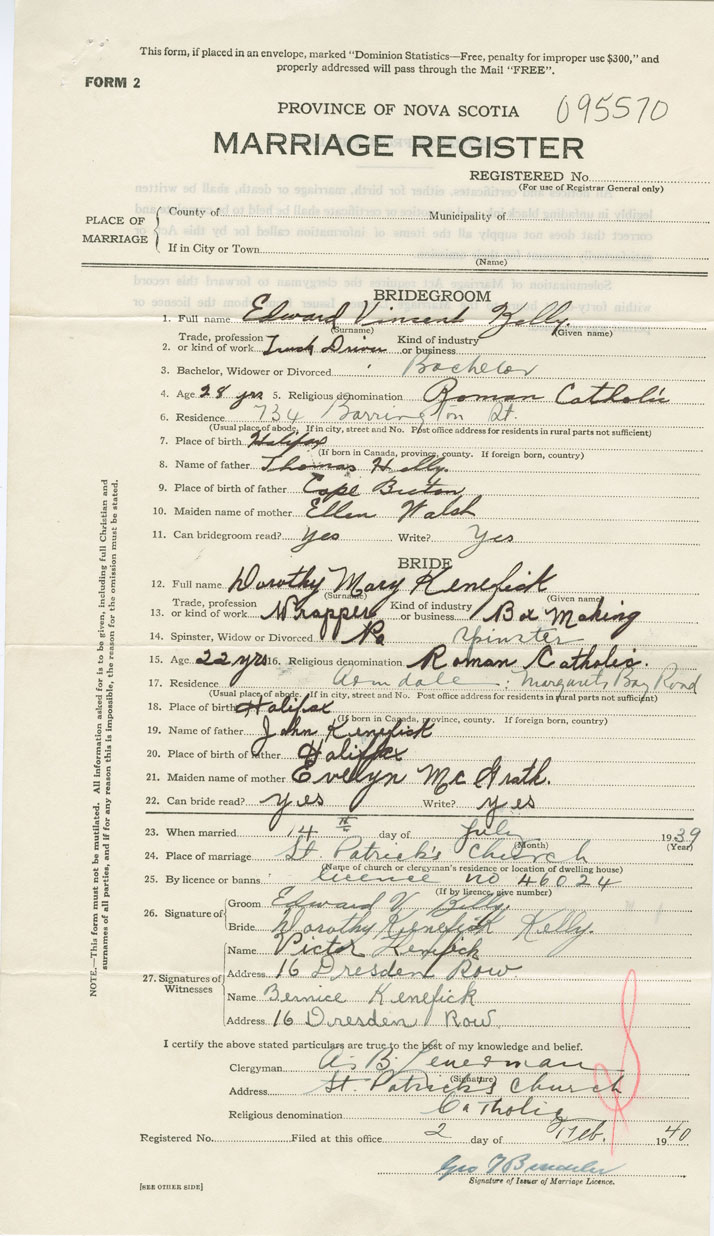 This form, if placed in an envelope, marked "Dominion Statistics—Free, penalty for improper use $300," and
properly addressed will pass through the Mail "FREE".
FORM 2
PROVINCE OF NOVA SCOTIA 095570
MARRIAGE REGISTER
REGISTERED No.
(For use of Registrar General only)
PLACE OF MARRIAGE
County of Municipality of
If in City or Town
(Name)
BRIDEGROOM
1. Full name Edward Vincent Kelly
(Surname) (Given name)
2. Trade, profession or kind of work Truck Driver Kind of industry or business
3. Bachelor, Widower or Divorced Bachelor
4. Age 28 yrs 5. Religious denomination Roman Catholic
6. Residence 734 Barrington St.
(Usual place of abode. If in city, street and No. Post office address for residents in rural parts not sufficient)
7. Place of birth Halifax
(If born in Canada, province, county. If foreign born, country)
8. Name of father Thomas Kelly
9. Place of birth of father Cape Breton
10. Maiden name of mother Ellen Walsh
11. Can bridegroom read? Yes Write? Yes
BRIDE
12. Full name Dorothy Mary Kenefick
(Surname) (Given name)
13. Trade, profession or kind of work Wrapper Kind of industry or business Box Making
14. Spinster, Widow or Divorced Spinster
15. Age 22 yrs 16. Religious denomination Roman Catholic.
17. Residence Armdale: Margarets Bay Road
(Usual place of abode. If in city, street and No. Post office address for residents in rural parts not sufficient)
18. Place of birth Halifax
(If born in Canada, province, county. If foreign born, country)
19. Name of father John Kenefick
20. Place of birth of father Halifax
21. Maiden name of mother Evelyn McGrath.
22. Can bride read? yes Write? yes
23. When married 14th day of July 1939
(Month) (Year)
24. Place of marriage St. Patrick's Church
(Name of church or clergyman's residence or location of dwelling house)
25. By licence or banns licence no 46024
(If by licence, give number)
26. Signature of
Groom Edward V Kelly
Bride Dorothy Kenefick Kelly.
27. Signatures of Witnesses
Name Victor Kenefick
Address 16 Dresden Row
Name Bernice Kenefick
Address 16 Dresden Row
I certify the above stated particulars are true to the best of my knowledge and belief.
Clergyman
(Signature)
Address St. Patrick's Church
Religious denomination Catholic
Registered No. Filed at this office 2 day of Feb. 1940
Geo
Signature of Issuer of Marriage Licence.
[SEE OTHER SIDE]
NOTE.—This form must not be mutilated. All information asked for is to be given, including full Christian and
surnames of all parties, and if for any reason this is impossible, the reason for the omission must be stated.